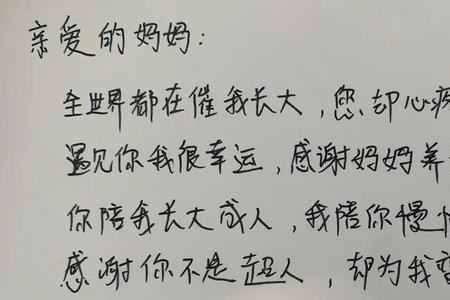 亲爱的妈妈：
全世界都在催我长大，您却心疼
遇见你我很幸运，感谢妈妈养
你陪我长大成人，我陪你慢慢
感谢你不是超人，却为我变